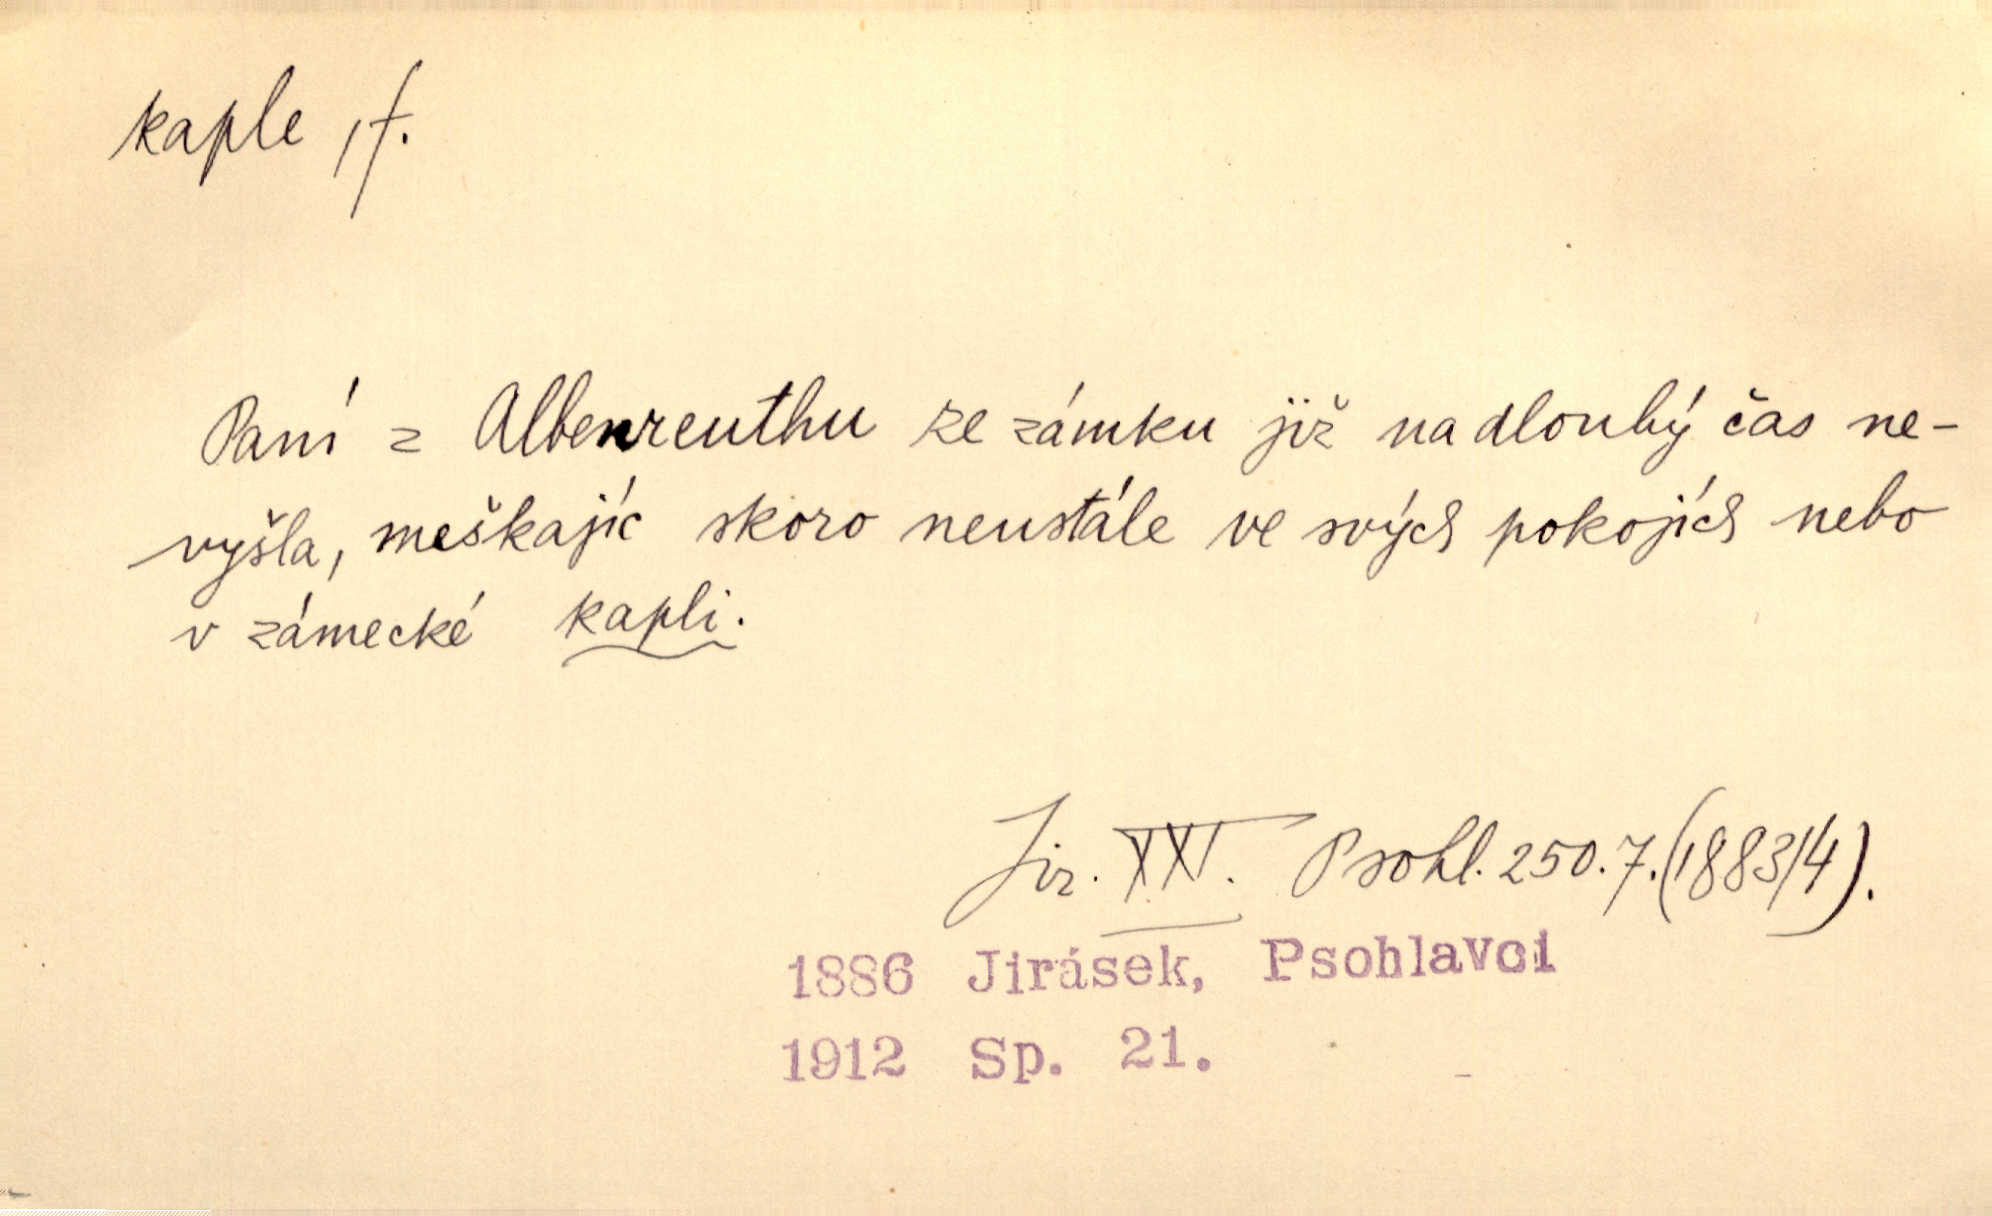 kaple, f.
Paní z Albenreuthu ze zámku již na dlouhý čas ne-
vyšla, meškajíc skoro neustále ve svých pokojích nebo
v zámecké kapli.
Jir. XXI. Psohl. 250.7.(1883/4).
1886 Jirásek, Psohlavci
1912 Sp. 21.